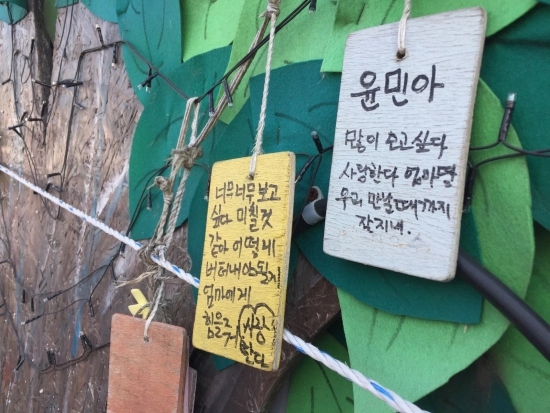 너무너무보고
싶다 미칠것
같아 어떻게
버텨내야될지
엄마에게
힘을주
사랑
한다
윤민아
많이 보고싶다
사랑한다 엄마딸
우리 만날때까지
잘지내.